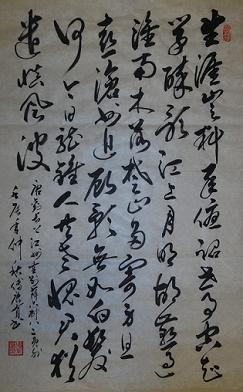 生涯岂料承優詔世事空知
学醉歌江上月明胡雁過
淮南木落楚山多寄身且
喜滄洲近顧影無如白髮
何今日龍鍾人共老愧君猶
遣慎風波
唐劉長卿江州重别薛六柳八二員外
壬辰年仲秋